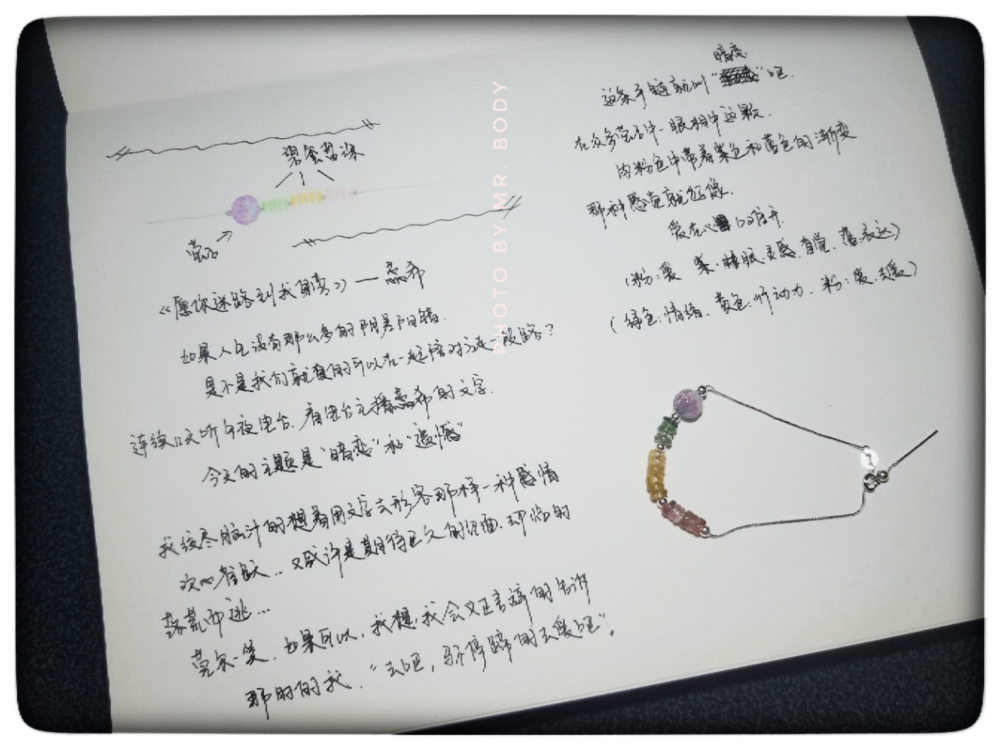 碧玺
萤石
《愿你迷路到我身旁》——蕊希
如果人生没有那么多的阴差阳错.
是不是我们就真的可以在一起陪对方走一段路?
连续几天听午夜电台. 有电台主播蕊希的文字.
今天的主题是"暗恋"和"遗憾"
我绞尽脑汁的想着用文字去形容那样一种感情
欢心雀跃.. 又或许是期待已久的见面. 却临的
落荒而逃...
莞尔一笑. 如果可以, 我想, 我会义正言辞的告诉
那时的我. "去吧, 马不停蹄的去爱吧".
暗恋
这条手链就叫" "吧.
在众多萤石中一眼相中这颗.
肉粉色中带着紫色和蓝色的渐变
那种感觉就好像.
爱在心 口难开.
(粉:爱 紫:睡眠.灵感.直觉. 蓝:表达)
(绿色:情绪. 黄色:行动力. 粉:爱.去爱)
PHOTO BY MR. BODY